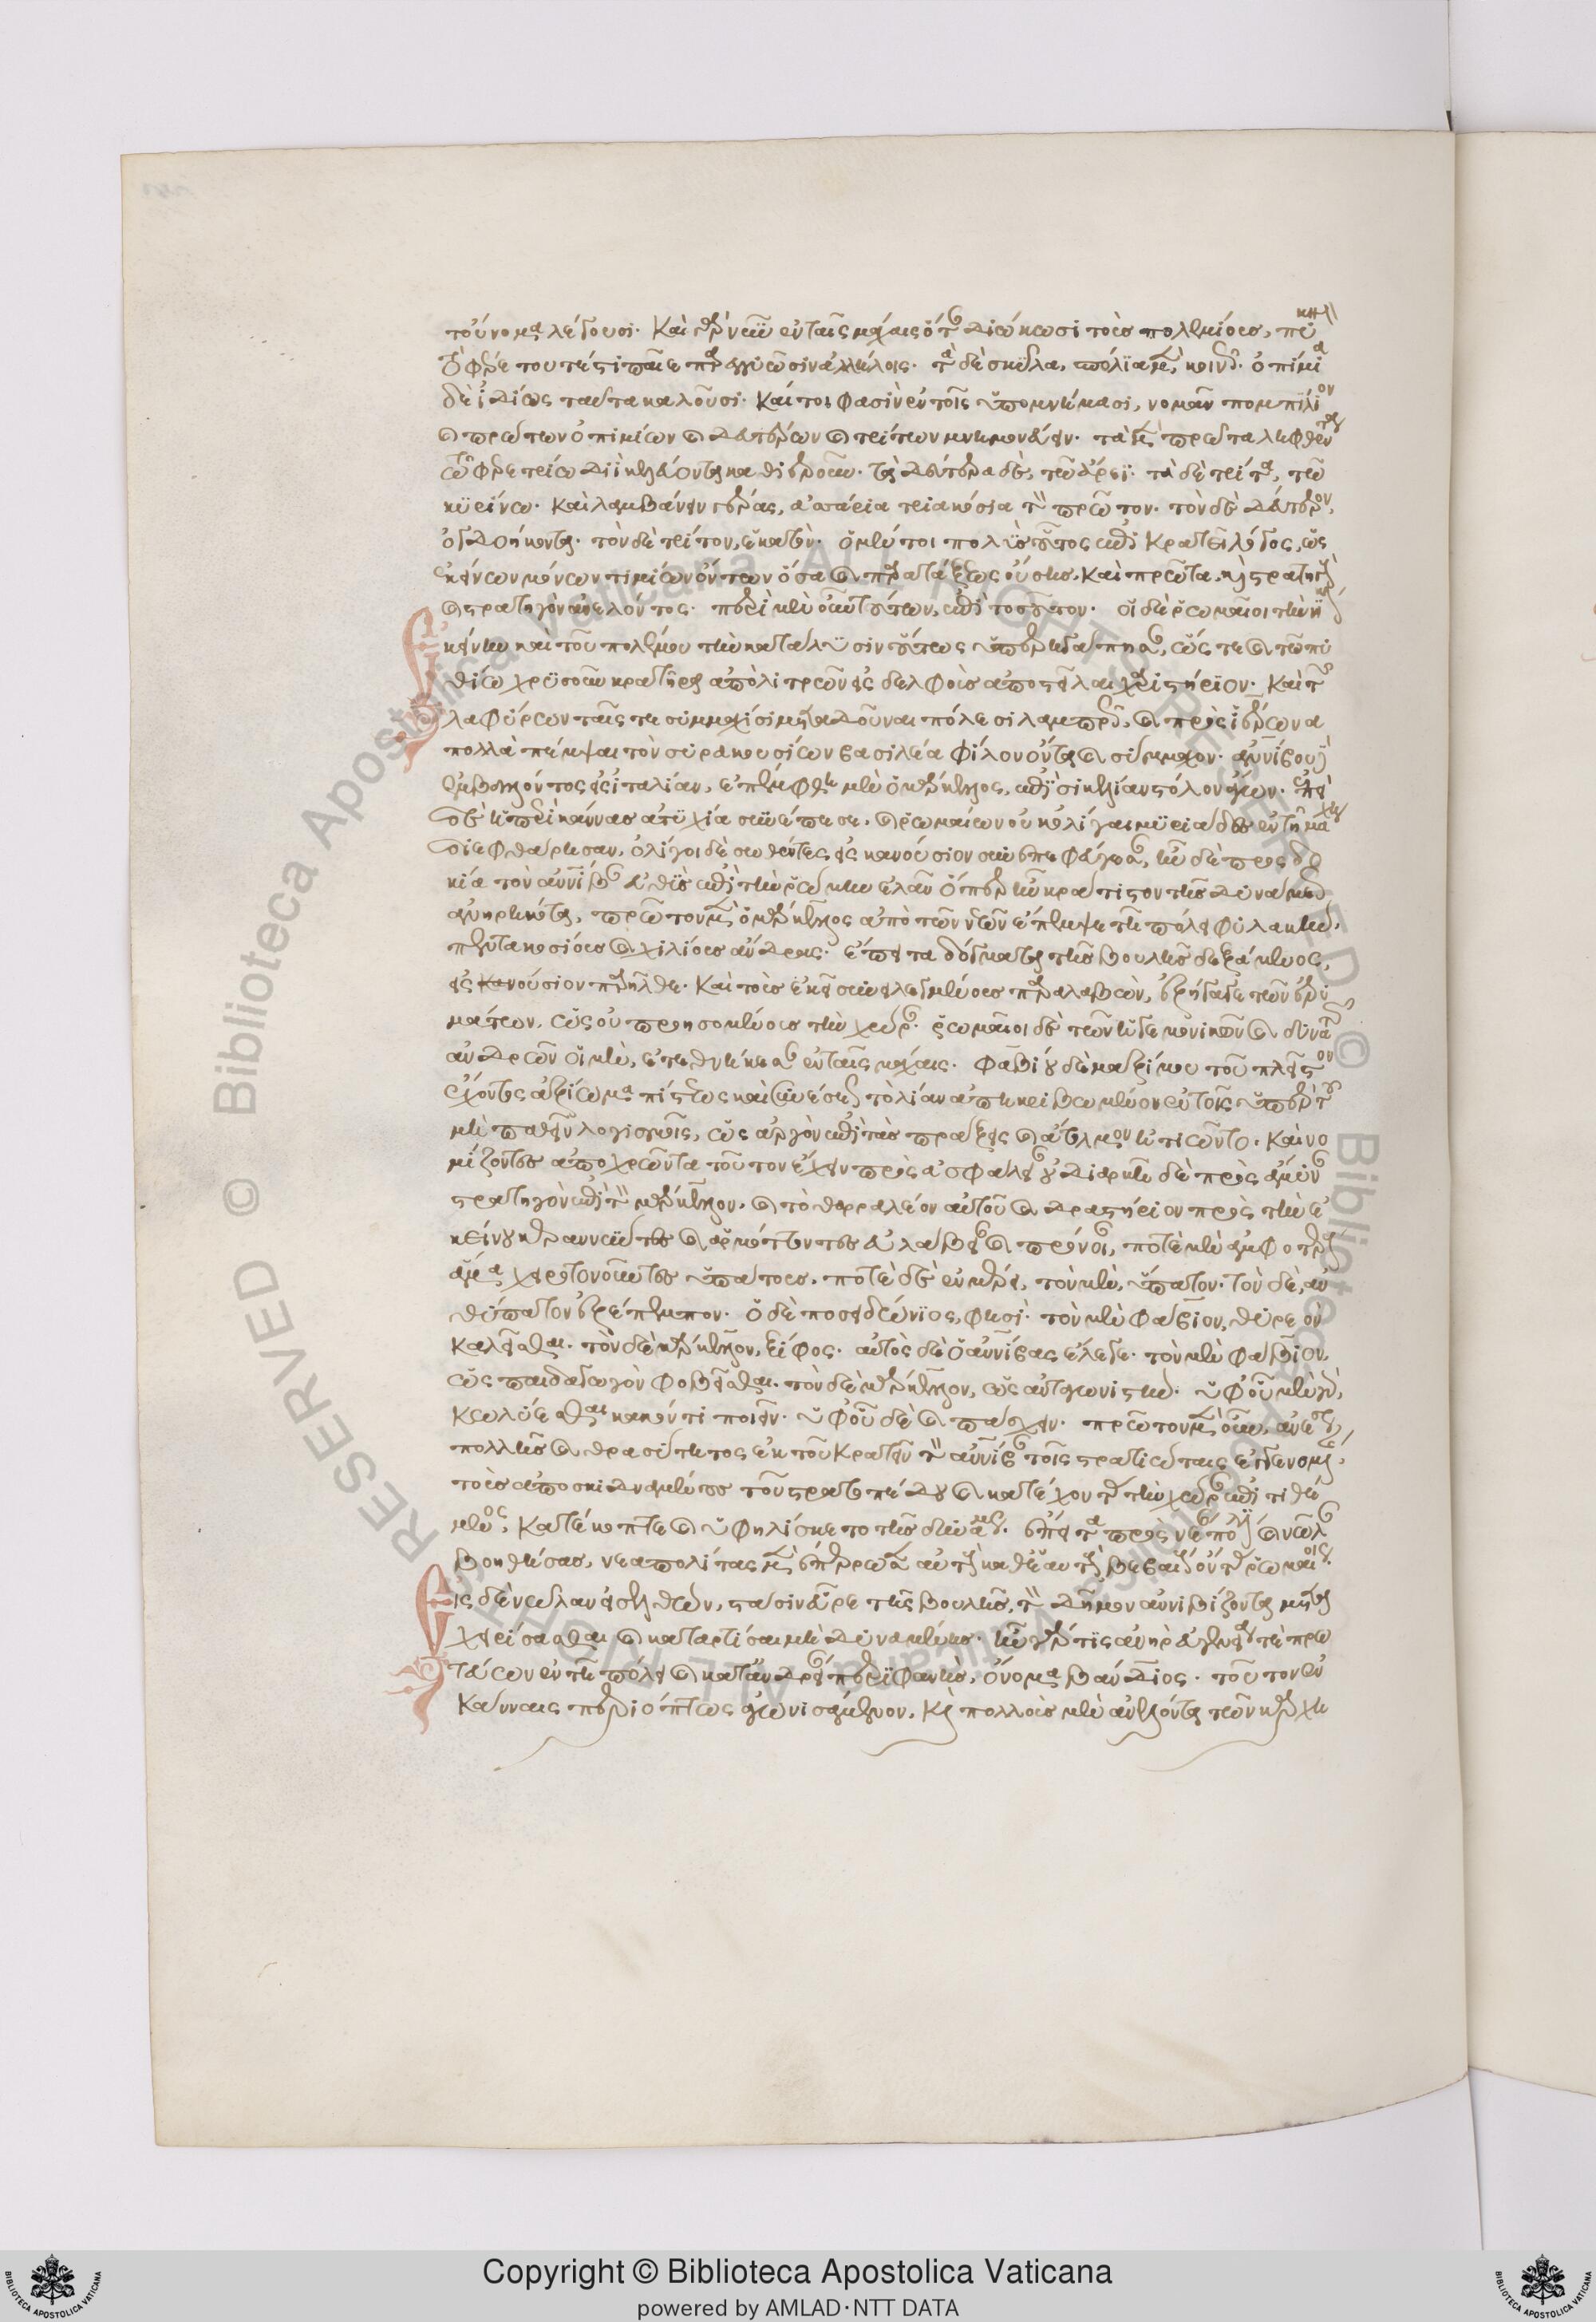 τοὔνομα λέγουσι· καὶ γὰρ νῦν ἐν ταῖς μάχαις ὅταν διώκωσι τοὺς πολεμίους, πυκνὰ
τὸ φέρε τουτέστι παῖε παρεγγυῶσιν ἀλλήλοις· τὰ δὲ σκῦλα, σπόλια μὲν, κοινῶς· ὀπίμια
δὲ ἰδίως ταῦτα καλοῦσι· καίτοι φασὶν ἐν τοῖς ὑπομνήμασι, νομᾶν πομπίλιον
καὶ πρώτων ὀπιμίων καὶ δευτέρων καὶ τρίτων μνημονεύειν· τὰ μὲν πρῶτα ληφθέντα
τῷ φερετρίῳ διῒ κελεύοντα καθιεροῦν· τὰ δεύτερα δὲ, τῷ ἄρεϊ· τὰ δὲ τρίτα, τῷ
κυρίνῳ· καὶ λαμβάνειν γέρας, ἀσσάρια τριακόσια τὸν πρῶτον· τὸν δὲ δεύτερον,
τὸν δὲ τρίτον, ἑκατόν· ὁ μέντοι πολὺς οὗτος ἐπικρατεῖ λόγος, ὡς
ἐκείνων μόνων τιμίων ὄντων ὅσα καὶ παρατάξεως οὔσης, καὶ πρῶτα, καὶ στρατηγοῦ
καὶ στρατηγὸν ἀνελόντος· περὶ μὲν οὖν τούτων, ἐπὶ τοσοῦτον· οἱ δὲ ῥωμαῖοι τὴν νίκην
ἐκείνην καὶ τοῦ πολέμου τὴν κατάλυσιν οὕτως ὑπερηγάπησαν, ὥστε καὶ τῷ πυ
θίῳ χρυσοῦν κρατῆρα ἀπὸ λιτρῶν εἰς δελφοὺς ἀποστεῖλαι χαριστήριον· καὶ τῶν
λαφύρων ταῖς τε συμμαχίσι μεταδοῦναι πόλεσι λαμπρῶς, καὶ πρὸς ἱέρωνα
πολλὰ πέμψαι τὸν συρακουσίων βασιλέα φίλον ὄντα καὶ σύμμαχον· ἀννίβου δὲ
ἐμβαλόντος εἰς ἰταλίαν, ἐπέμφθη μὲν ὁ μάρκελλος, ἐπὶ σικελίαν στόλον ἄγων· ἐπεὶ
δὲ ἡ περὶ κάννας ἀτυχία συνέπεσε, καὶ ῥωμαίων οὐκ ὀλίγαι μυριάδες ἐν τῇ μάχῃ
διεφθάρησαν, ὀλίγοι δὲ σωθέντες εἰς κανούσιον συνεπεφεύγεσαν, ἦν δὲ προσδο
κία τὸν ἀννίβαν εὐθὺς ἐπὶ τὴν ῥώμην ἐλᾶν ὅπερ ἦν κράτιστον τῆς δυνάμεως
ἀνῃρηκότα, πρῶτον μὲν ὁ μάρκελλος ἀπὸ τῶν νεῶν ἔπεμψε τῇ πόλει φυλακὴν,
πεντακοσίους καὶ χιλίους ἄνδρας· ἔπειτα δόγματα τῆς βουλῆς δεξάμενος,
εἰς κανούσιον παρῆλθε· καὶ τοὺς ἐκεῖ συνειλεγμένους παραλαβὼν, ἐξήγαγε τῶν ἐρυ
μάτων, ὡς οὐ προησομένους τὴν χώραν· ῥωμαῖοι δὲ τῶν ἡγεμονικῶν καὶ δυνατῶν
ἀνδρῶν οἱ μὲν, ἐτεθνήκεσαν ἐν ταῖς μάχαις· φαβίου δὲ μαξίμου τοῦ πλεῖστον
ἔχοντος ἀξίωμα πίστεως καὶ συνέσεως τὸ λίαν ἀπηκριβωμένον ἐν τοῖς ὑπὲρ τοῦ
μὴ παθεῖν λογισμοῖς, ὡς ἀργὸν ἐπὶ τὰς πράξεις καὶ ἄτολμον ᾐτιῶντο· καὶ νο
μίζοντες ἀποχρῶντα τοῦτον ἔχειν πρὸς ἀσφάλειαν οὐ διαρκῆ δὲ πρὸς ἄμυναν
στρατηγὸν ἐπὶ τὸν μάρκελλον, καὶ τὸ θαρραλέον αὐτοῦ καὶ δραστήριον πρὸς τὴν ἐ
κείνου κεραννύντες καὶ ἁρμόττοντες εὐλάβειαν καὶ πρόνοιαν, ποτὲ μὲν ἀμφοτέρους
ἅμα χειροτονοῦντες ὑπάτους, ποτὲ δὲ ἐν μέρει, τὸν μὲν, ὕπατον· τὸν δὲ, ἀν
θύπατον ἐξέπεμπον· ὁ δὲ ποσειδώνιος, φησὶ· τὸν μὲν φάβιον, θυρεὸν
καλεῖσθαι· τὸν δὲ μάρκελλον, ξίφος· αὐτὸς δὲ ὁ ἀννίβας ἔλεγε· τὸν μὲν φάβιον,
ὡς παιδαγωγὸν φοβεῖσθαι· τὸν δὲ μάρκελλον, ὡς ἀνταγωνιστήν· ὑφ' οὗ μὲν γὰρ,
κωλύεσθαι κακόν τι ποιεῖν· ὑφ' οὗ δὲ καὶ πάσχειν· πρῶτον μὲν οὖν, ἀνέσεως
πολλῆς καὶ θρασύτητος ἐκ τοῦ κρατεῖν τὸν ἀννίβαν τοῖς στρατιώταις ἐγγενομένης,
τοὺς ἀποσκιδναμένους τοῦ στρατοπέδου καὶ κατέχοντας τὴν χώραν ἐπιτιθέ
μενος, κατέκοπτε καὶ ὑφήλισκε τὸ τῆς δυνάμεως· ἔπειτα πρὸς νέαν πόλιν καὶ νῶλαν
βοηθήσας, νεαπολίτας μὲν ἐπέρρωσεν αὐτοὺς καθ' ἑαυτοὺς βεβαίους ὄντας ῥωμαίοις·
εἰς δὲ νῶλαν εἰσελθὼν, στάσιν εὗρε τῆς βουλῆς, τὸν δῆμον ἀννιβίζοντα μετα
χειρίσασθαι καὶ καταρτίσαι μὴ δυναμένης· ἦν γάρ τις ἀνὴρ εὐγενείᾳ τε πρω
τεύων ἐν τῇ πόλει καὶ κατ' ἀνδρείαν ἐπιφανὴς, ὄνομα βάνδιος· τοῦτον ἐν
κάνναις περιόπτως ἀγωνισάμενον, καὶ πολλοὺς μὲν ἀνελόντα τῶν καρχη